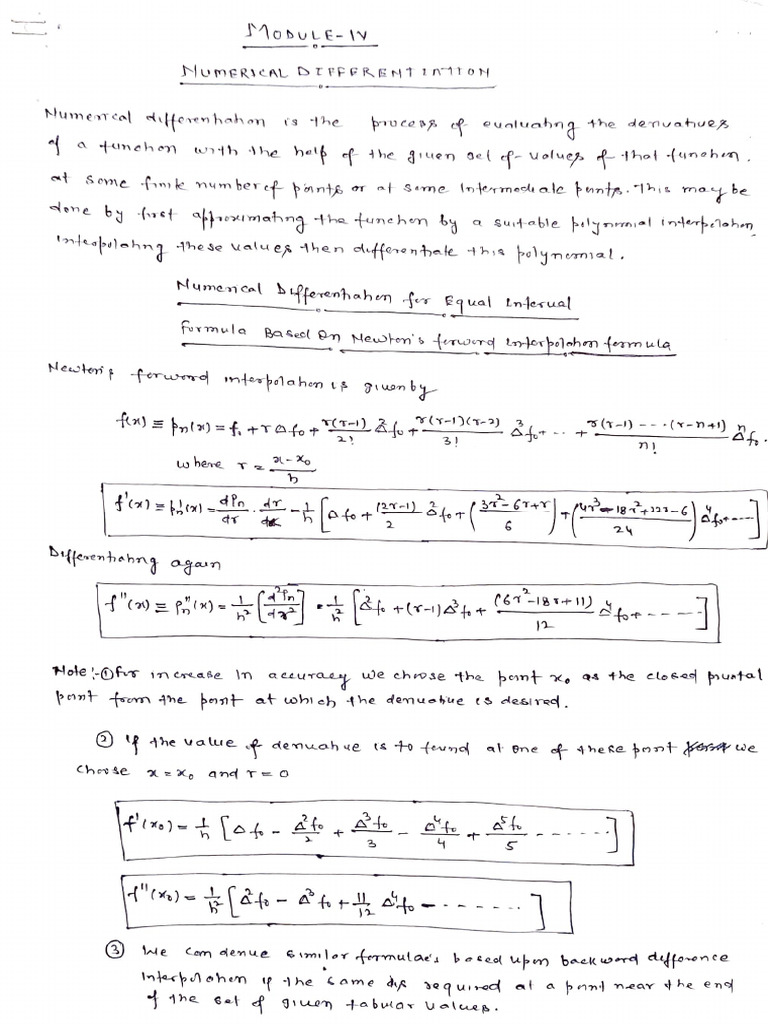 MODULE-IV
NUMERICAL DIFFERENTIATION
Numerical differentiation is the process of evaluating the derivatives
of a function with the help of the given set of values of that function.
at some finite number of points or at some Intermediate points. This may be
done by first approximating the function by a suitable polynomial interpolation
interpolating these values then differentiate this polynomial.
Numerical Differentiation for Equal Interval
Formula Based On Newton's forward interpolation formula
Newton's forward interpolation is given by
f(x) ≡ Pn(x) = f₀ + rΔf₀ + r(r-1)/2! Δ²f₀ + r(r-1)(r-2)/3! Δ³f₀ + .. + r(r-1)---(r-n+1)/n! Δⁿf₀.
where r = x-x₀/h
f'(x) ≡ P'n(x) = dPn/dr . dr/dx = 1/h [Δf₀ + (2r-1)/2 Δ²f₀ + (3r²-6r+r/6) + (4r³-18r²+22r-6/24) Δ⁴f₀+----]
Differentiating again
f''(x) ≡ Pn''(x) = 1/h² [d²Pn/dr²] = 1/h² [Δ²f₀ + (r-1)Δ³f₀ + (6r²-18r+11)/12 Δ⁴f₀ + -----]
Note:- ① For increase In accuracy we choose the point x₀ as the closed pivotal
point from the point at which the derivative is desired.
② If the value of derivative is to found at one of these point we
choose x = x₀ and r = 0
f'(x₀) = 1/h [Δf₀ - Δ²f₀/2 + Δ³f₀/3 - Δ⁴f₀/4 + Δ⁵f₀/5 ------]
f''(x₀) = 1/h² [Δ²f₀ - Δ³f₀ + 11/12 Δ⁴f₀ - ------]
③ We can derive similar formulae's based upon backward difference
Interpolation if the same is required at a point near the end
of the set of given tabular values.